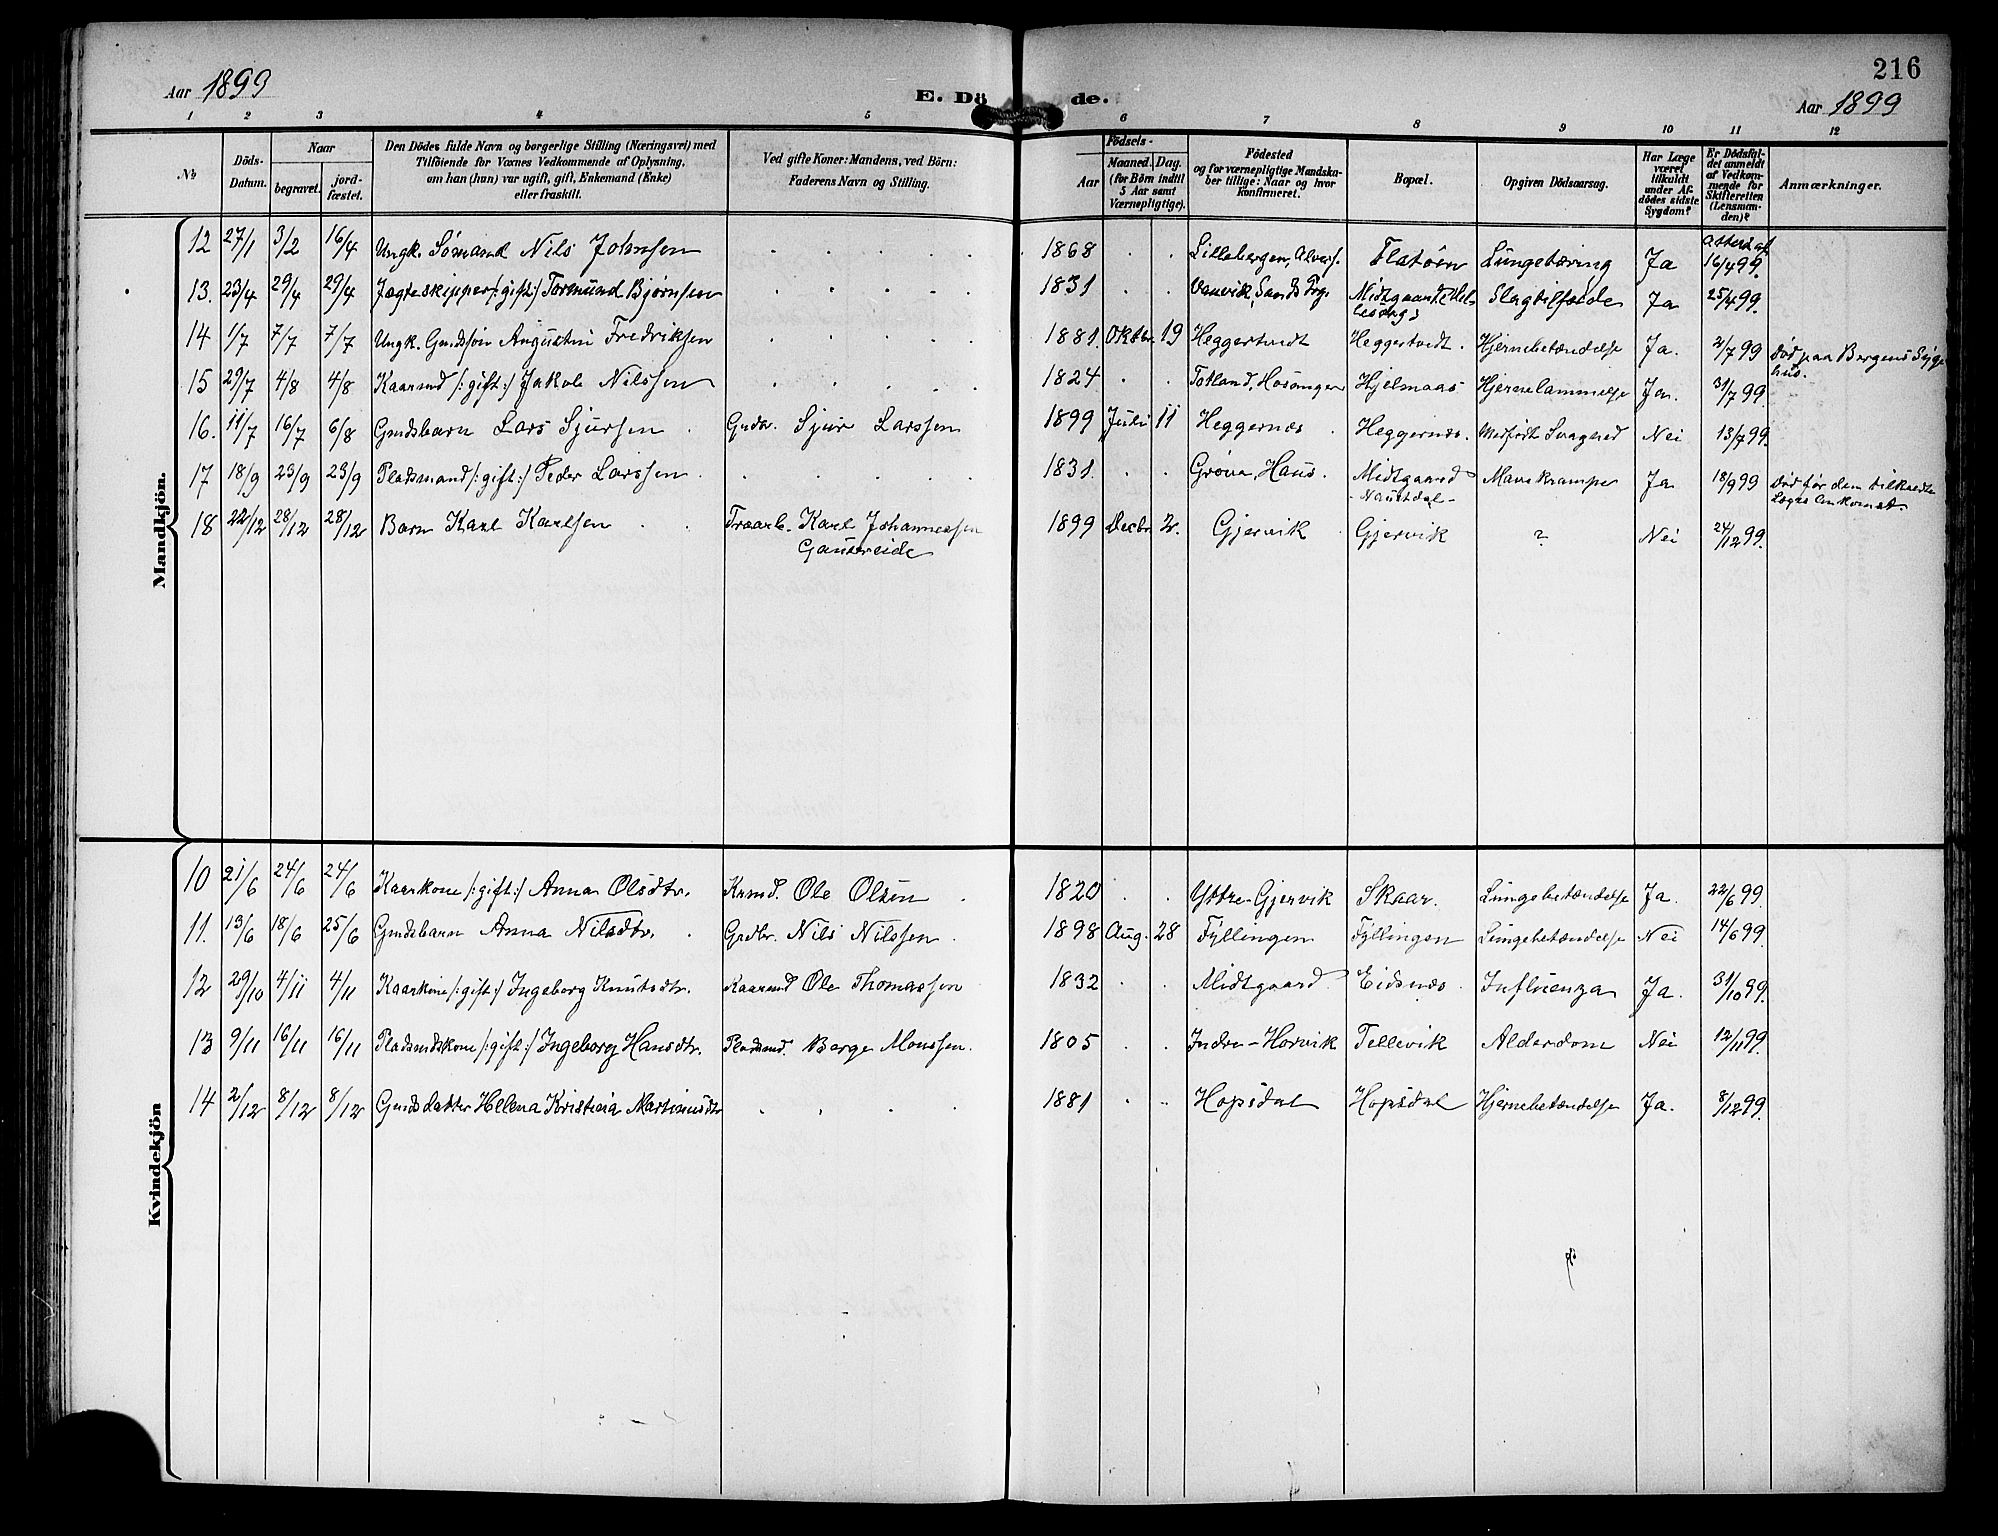 216
Aar 1899
E. Dö de.
Aar 1899
1 2 3 4 5 6 7 8 9 10 11 12
№
Döds-Datum.
Naar
begravet.
jord-fæstet.
Den Dödes fulde Navn og borgerlige Stilling (Næringsvei) med
Tilföiende for Voxnes Vedkommende af Oplysning,
om han (hun) var ugift, gift, Enkemand (Enke)
eller fraskilt.
Ved gifte Koner: Mandens, ved Börn:
Faderens Navn og Stilling.
Födsels-
Aar
Maaned. Dag.
(for Börn indtil
5 Aar samt
Værnepligtige).
Födested
og for værnepligtige Mandska-
ber tillige: Naar og hvor
konfirmeret.
Bopæl.
Opgiven Dödsaarsag.
Har Læge
været
tilkaldt
under Af-
dödes sidste
Sygdom?
Er Dödsfal-
det anmeldt
af Vedkom-
mende for
Skifteretten
(Lensman-
den)?
Anmærkninger.
Mandkjön.
12 27/1 3/2 16/4 Ungk. Sømand Nils Johnsen 1868 Lillebergen, Alvers. Flatöen Lungetæring Ja 16/4 99.
13. 23/4 29/4 29/4 Jægteskipper /:gift:/ Tormund Bjørnsen 1831 Vanvik, Sands Prgj. Midtgaard Slagtilfælde Ja 25/4 99.
14 1/7 7/7 7/7 Ungk. Grdssøn Augustin Fredriksen 1881. Oktbr. 19 Heggertvedt Heggertvedt. Hjernebetændelse Ja. 2/7 99 Død paa Bergens Syge
hus.
15 29/7 4/8 4/8 Kaarmd /:gift:/ Jakob Nilssen 1824 Totland, Hosanger Hjelmaas Hjernelammelse Ja. 31/7 99.
16. 11/7 16/7 6/8 Grdsbarn Lars Sjursen Grdbr. Sjur Larssen 1899 Juli 11 Heggernæs Heggernæs. Medfödt Svaghed Nei 13/7 99.
17 18/9 23/9 23/9 Pladsmand /:gift:/ Peder Larssen 1831 Gröna, Haus. Midtgaard
-Nautdal- Mavekrampe Ja 18/9 99 Död før den tilkaldte
Læges Ankomst.
18 22/12 28/12 28/12 Barn Karl Karlsen Traarb. Karl Johannessen
Gausereide 1899 Decbr 2. Gjervik Gjervik ? Nei 24/12 99.
Kvindekjön
10 21/6 24/6 24/6 Kaarkone /:gift:/ Anna Olsdtr. Krmd. Ole Olsen 1820 Yttre-Gjervik Skaar. Lungebetændelse Ja. 22/6 99.
11. 13/6 18/6 25/6 Grdsbarn Anna Nilsdtr. Grdbr. Nils Nilssen 1898 Aug. 28 Fyllingen Fyllingen Lungebetændelse Nei 14/6 99.
12 29/10 4/11 4/11 Kaarkone /:gift:/ Ingeborg Knutsdtr. Kaarmd Ole Thomassen 1832 Midtgaard Eidsnæs Influenza Ja. 31/10 99.
13 9/11 16/11 16/11 Pladsmdskone /:gift:/ Ingeborg Hansdtr. Pladsmd. Berge Monssen. 1805 Indre-Horvik Tellevik Alderdom Nei 12/11 99.
14 2/12 8/12 8/12 Grdsdatter Helena Kristina Martinusdtr 1881 Hopsdal Hopsdal Hjernebetændelse Ja. 8/12 99.